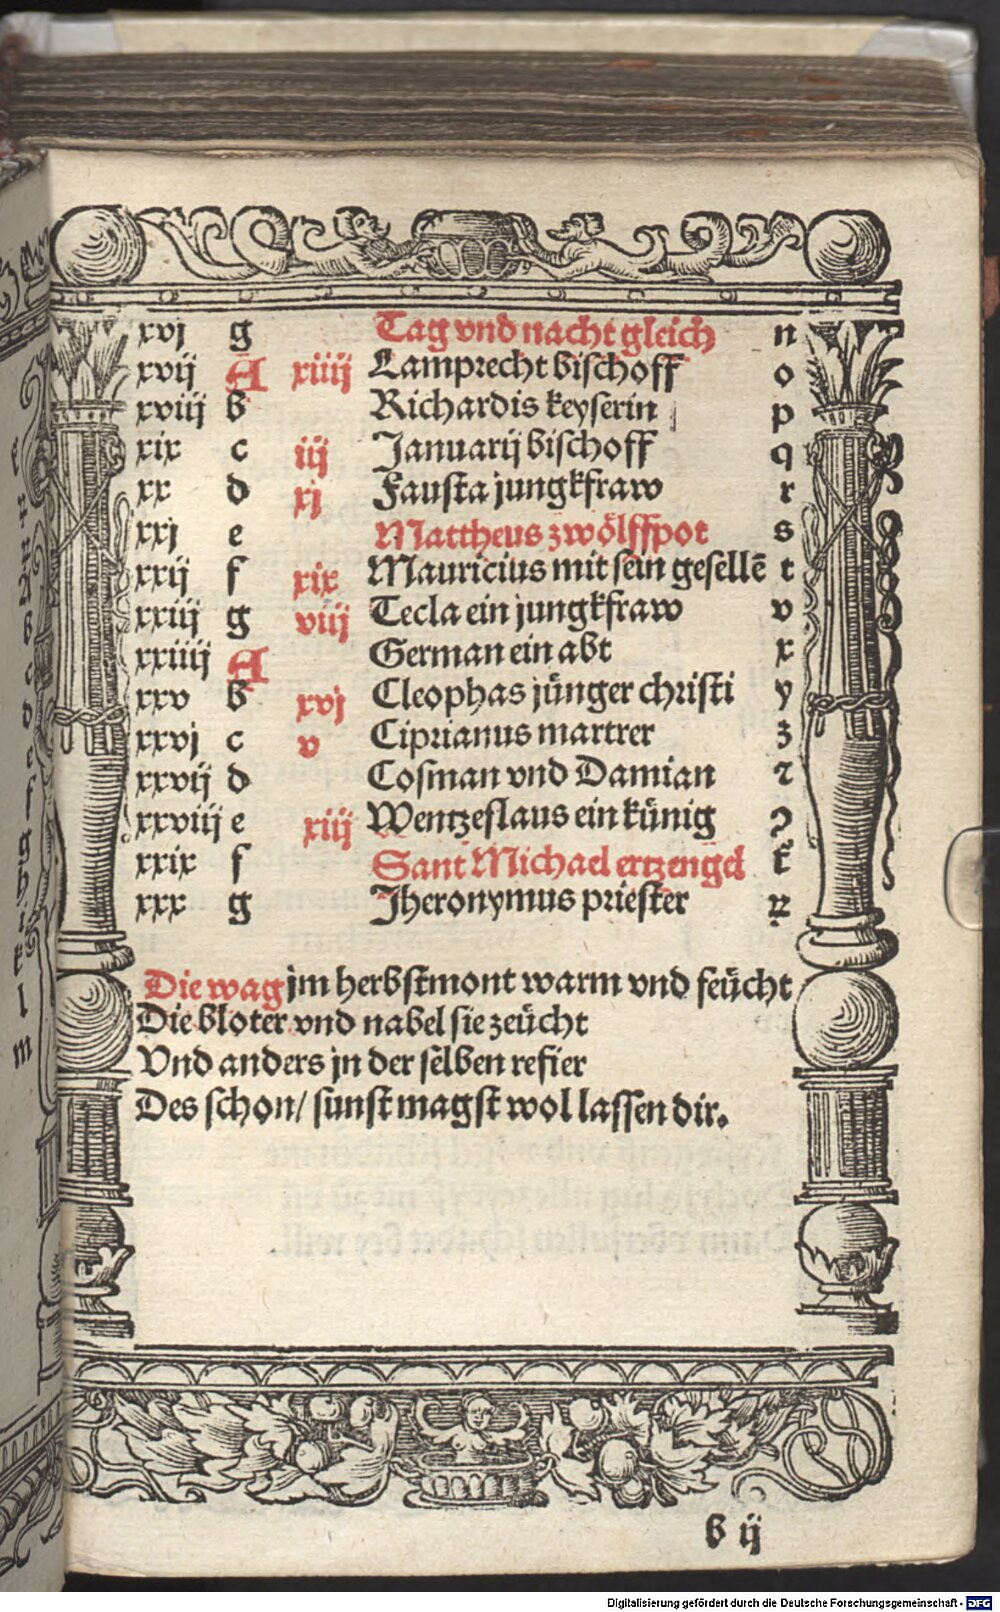 xvj g Tag vnd nacht gleich n
xvij A xiiij Lamprecht bischoff o
xviij b Richardis keyserin p
xix c iij Januarij bischoff q
xx d xj Fausta jungkfraw r
xxj e Mattheus zwölffpot s
xxij f xix Mauricius mit sein gesellē t
xxiij g viij Tecla ein jungkfraw v
xxiiij A German ein abt x
xxv b xvj Cleophas jünger christi y
xxvj c v Ciprianus martrer z
xxvij d Cosman vnd Damian
xxviij e xiij Wentzeslaus ein künig
xxix f Sant Michael ertzengel
xxx g Jheronymus priester
Die wag jm herbstmont warm vnd feücht
Die bloter vnd nabel sie zeücht
Vnd anders jn der selben refier
Des schon/ sunst magst wol lassen dir.
b ij
Digitalisierung gefördert durch die Deutsche Forschungsgemeinschaft - DFG